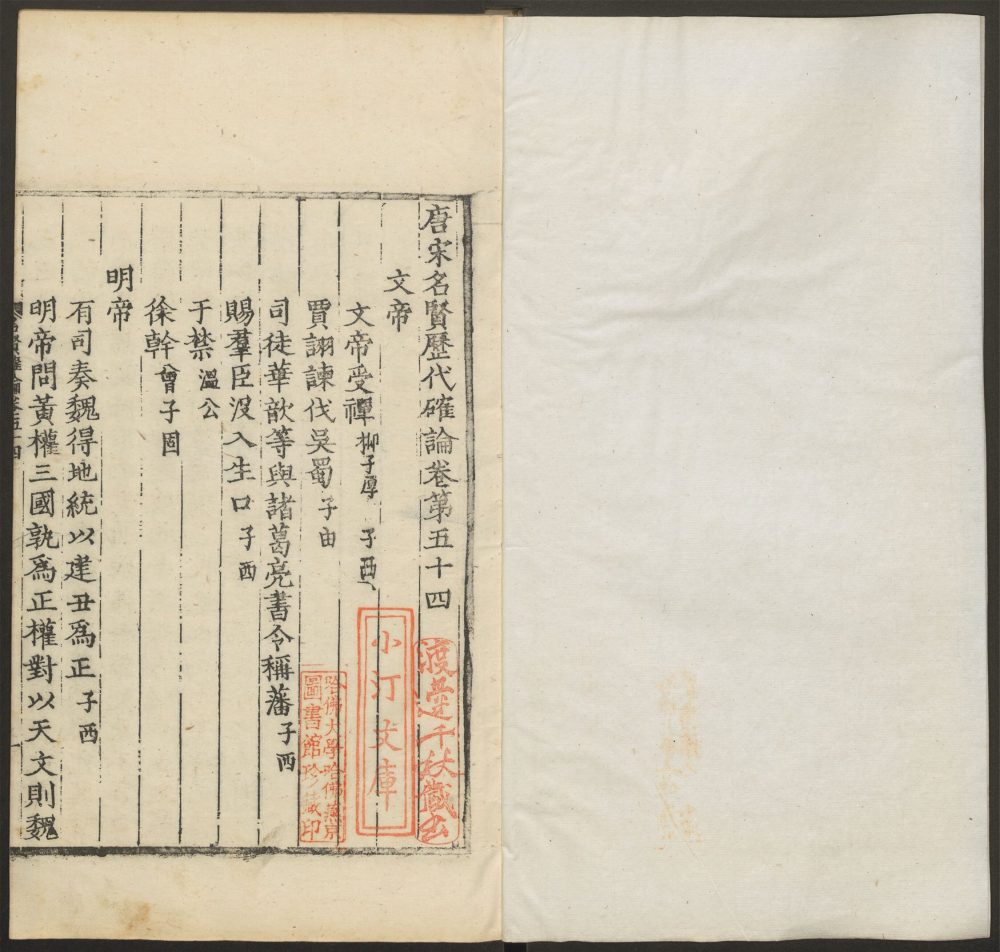 唐宋名賢歷代確論卷第五十四
文帝
文帝受禪 柳子厚 子西
賈詡諫伐吳蜀 子由
司徒華歆等與諸葛亮書令稱藩 子西
賜羣臣沒入生口 子西
于禁 溫公
徐幹 曾子固
明帝
有司奏魏得地統以建丑為正 子西
明帝問黃權三國孰為正權對以天文則魏
渡邊千秋藏書
小汀文庫
哈佛大學哈佛燕京
圖書館珍藏印